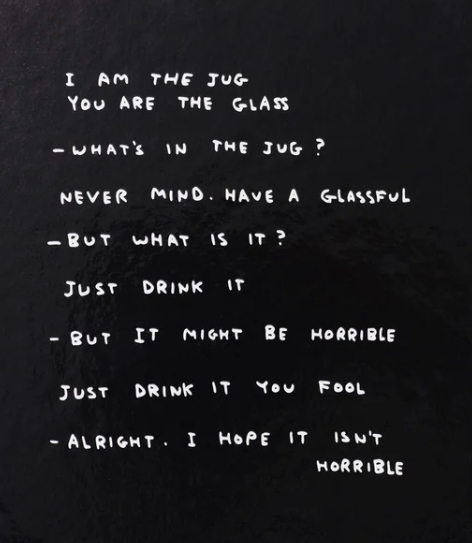 I AM THE JUG
YOU ARE THE GLASS
- WHAT'S IN THE JUG?
NEVER MIND. HAVE A GLASSFUL
- BUT WHAT IS IT?
JUST DRINK IT
- BUT IT MIGHT BE HORRIBLE
JUST DRINK IT YOU FOOL
- ALRIGHT. I HOPE IT ISN'T
HORRIBLE